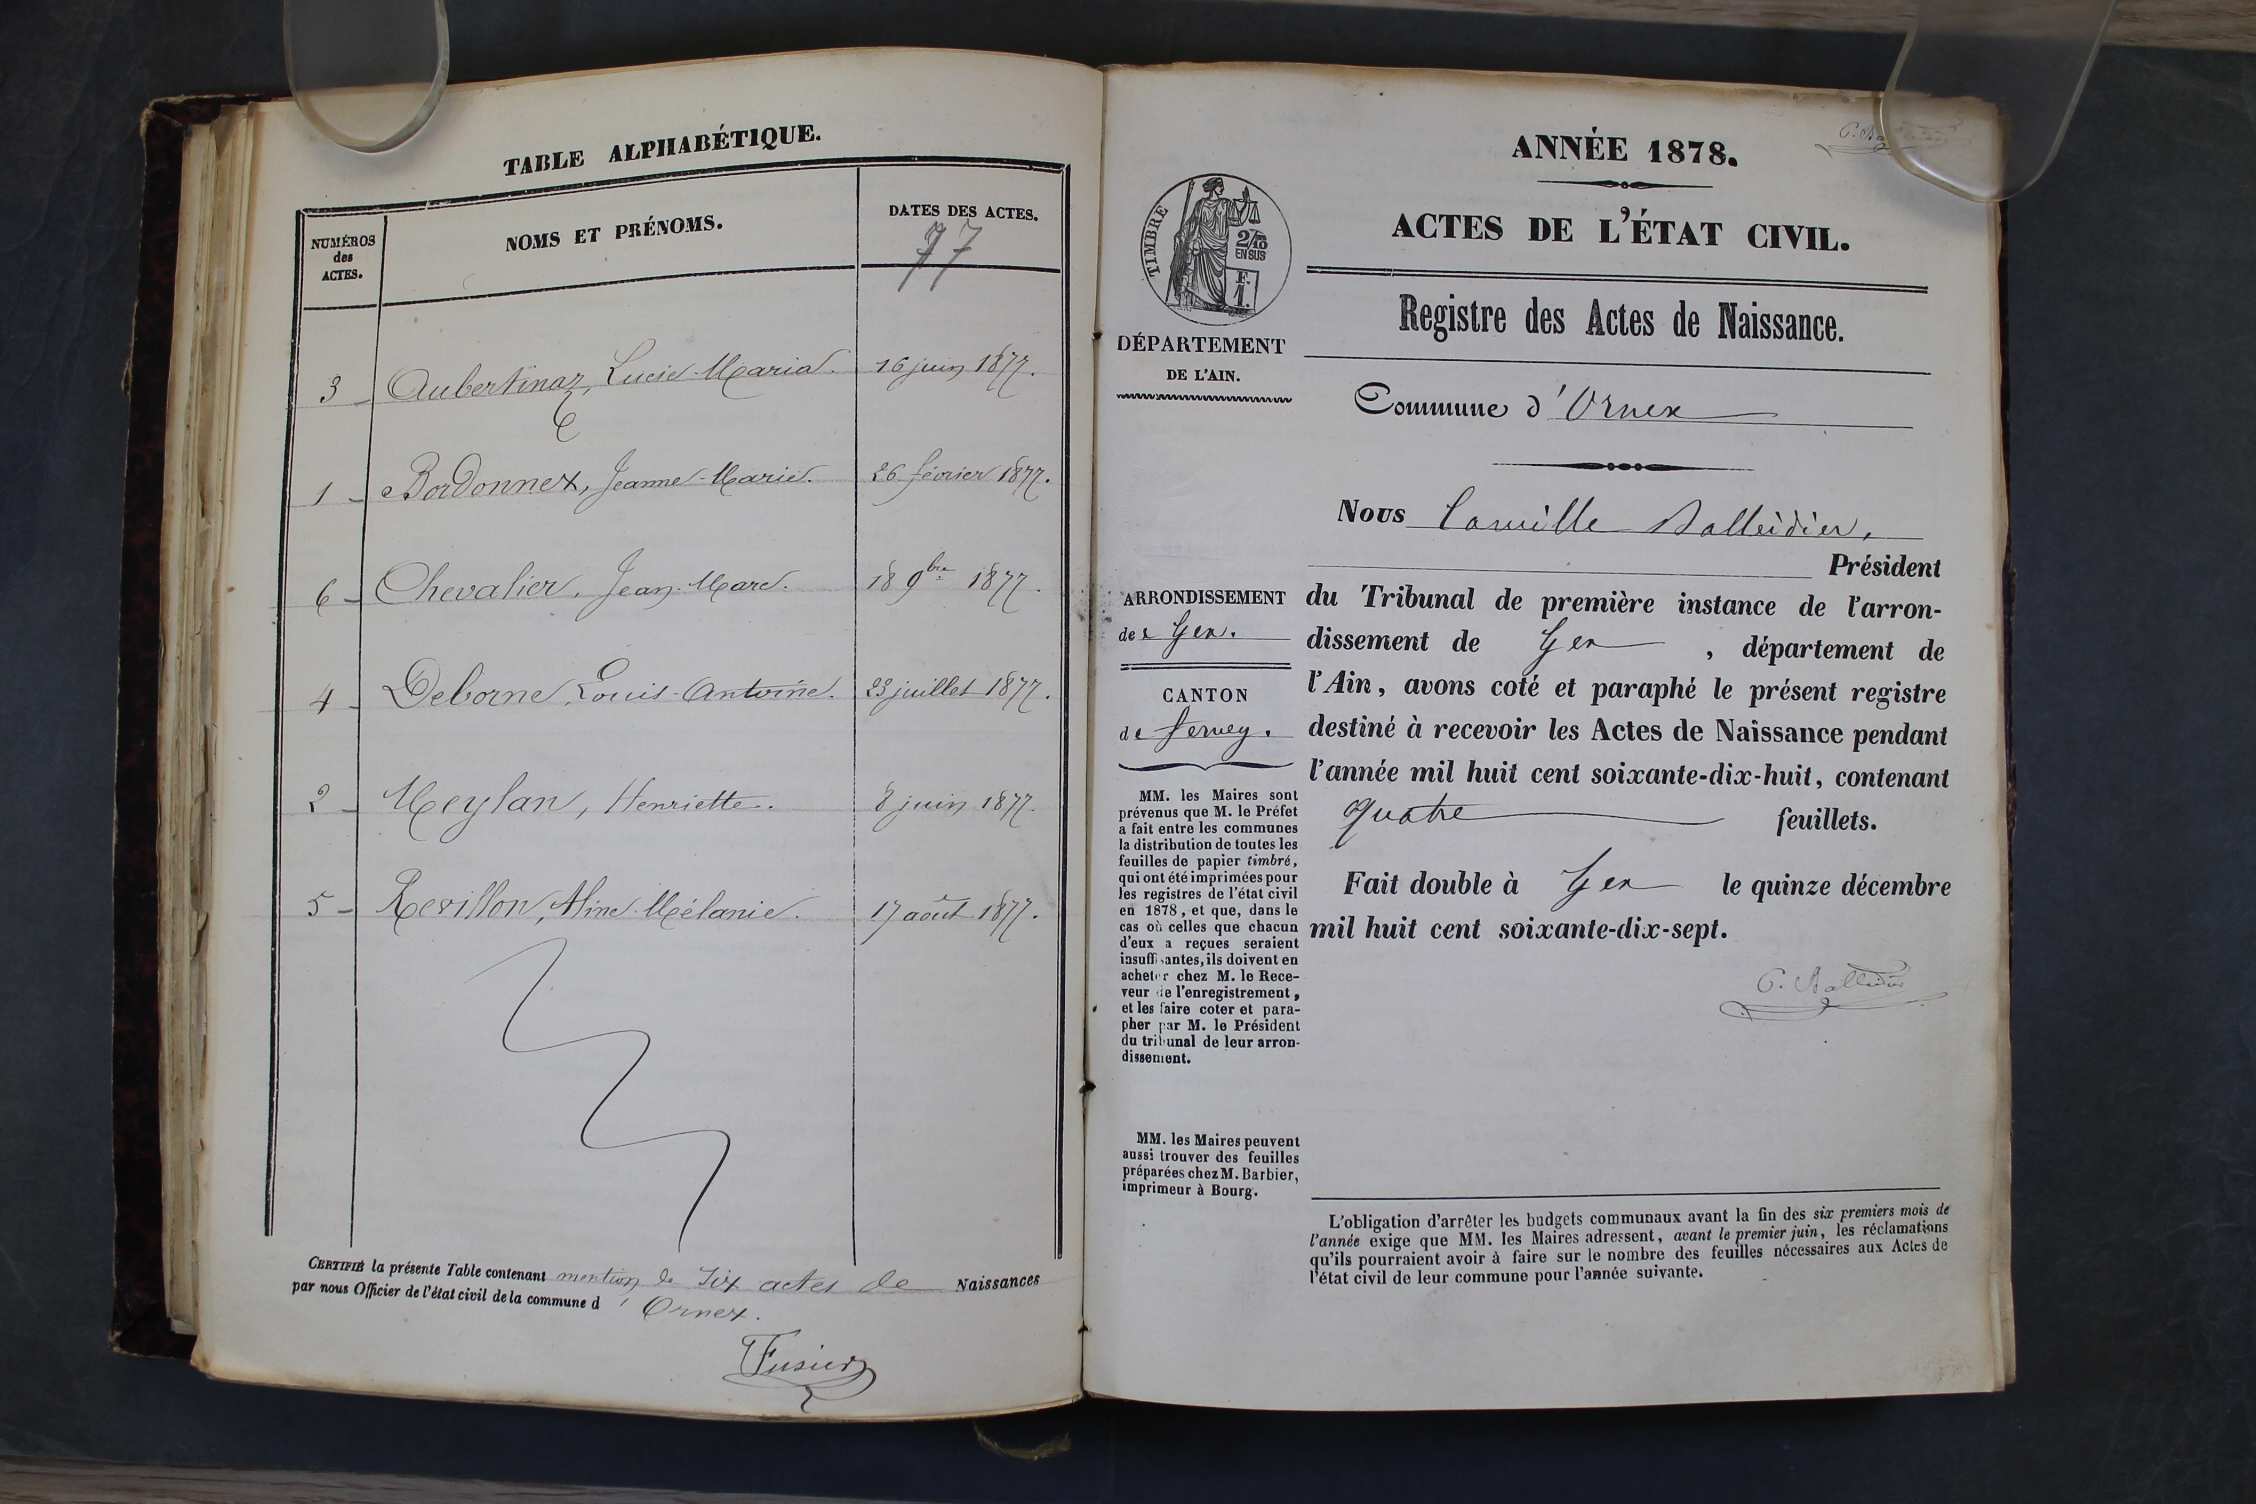 TABLE ALPHABÉTIQUE.
NUMÉROS
des
ACTES.
NOMS ET PRÉNOMS.
DATES DES ACTES.
77
3 - Aubertinaz, Lucie-Maria. 16 juin 1877.
1 - Bordonnex, Jeanne-Marie. 26 février 1877.
6 - Chevalier, Jean-Marc. 18 9bre 1877.
4 - Deborne, Louis-Antoine. 23 juillet 1877.
2 - Meylan, Henriette. 8 juin 1877.
5 - Revillon, Aline-Mélanie. 17 août 1877.
CERTIFIÉ la présente Table contenant mention de six actes de Naissances
par nous Officier de l'état civil de la commune d'Ornex.
Fusier
ANNÉE 1878.
ACTES DE L'ÉTAT CIVIL.
TIMBRE
2/10
EN SUS
F.
1.
Registre des Actes de Naissance.
DÉPARTEMENT
DE L'AIN.
Commune d'Ornex
Nous Camille Balleidier,
Président
du Tribunal de première instance de l'arron-
dissement de Gex, département de
l'Ain, avons coté et paraphé le présent registre
destiné à recevoir les Actes de Naissance pendant
l'année mil huit cent soixante-dix-huit, contenant
quatre feuillets.
Fait double à Gex le quinze décembre
mil huit cent soixante-dix-sept.
C. Balleidier
ARRONDISSEMENT
de Gex.
CANTON
de Ferney.
MM. les Maires sont
prévenus que M. le Préfet
a fait entre les communes
la distribution de toutes les
feuilles de papier timbré,
qui ont été imprimées pour
les registres de l'état civil
en 1878, et que, dans le
cas où celles que chacun
d'eux a reçues seraient
insuffisantes, ils doivent en
acheter chez M. le Rece-
veur de l'enregistrement,
et les faire coter et para-
pher par M. le Président
du tribunal de leur arron-
dissement.
MM. les Maires peuvent
aussi trouver des feuilles
préparées chez M. Barbier,
imprimeur à Bourg.
L'obligation d'arrêter les budgets communaux avant la fin des six premiers mois de
l'année exige que MM. les Maires adressent, avant le premier juin, les réclamations
qu'ils pourraient avoir à faire sur le nombre des feuilles nécessaires aux Actes de
l'état civil de leur commune pour l'année suivante.